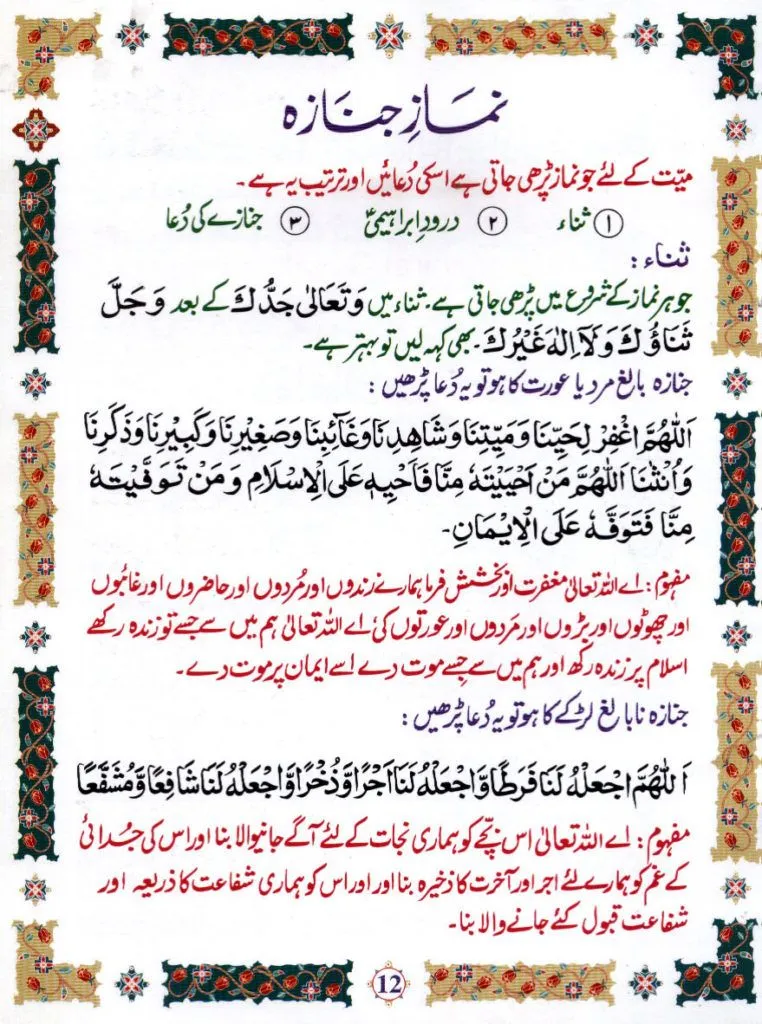 نمازِ جنازہ
میّت کے لئے جو نماز پڑھی جاتی ہے اسکی دُعائیں اور ترتیب یہ ہے ۔
۱ ثناء ۲ درودِ ابراہیمیؑ ۳ جنازے کی دُعا
ثناء :
جو ہر نماز کے شروع میں پڑھی جاتی ہے۔ ثناء میں وَتَعَالٰی جَدُّكَ کے بعد وَ جَلَّ
ثَنَاؤُكَ وَلَآ اِلٰهَ غَيْرُكَ۔ بھی کہہ لیں تو بہتر ہے۔
جنازہ بالغ مرد یا عورت کا ہو تو یہ دُعا پڑھیں :
اَللّٰهُمَّ اغْفِرْ لِحَيِّنَا وَمَيِّتِنَا وَشَاهِدِنَا وَغَآئِبِنَا وَصَغِيْرِنَا وَكَبِيْرِنَا وَذَكَرِنَا
وَاُنْثٰنَا اَللّٰهُمَّ مَنْ اَحْيَيْتَهٗ مِنَّا فَاَحْيِهٖ عَلَى الْاِسْلَامِ وَمَنْ تَوَفَّيْتَهٗ
مِنَّا فَتَوَفَّهٗ عَلَى الْاِيْمَانِ۔
مفہوم : اے اللہ تعالیٰ مغفرت اور بخشش فرما ہمارے زندوں اور مُردوں اور حاضروں اور غائبوں
اور چھوٹوں اور بڑوں اور مَردوں اور عورتوں کی، اے اللہ تعالیٰ ہم میں سے جسے تو زندہ رکھے
اسلام پر زندہ رکھ اور ہم میں سے جِسے موت دے اسے ایمان پر موت دے۔
جنازہ نابالغ لڑکے کا ہو تو یہ دُعا پڑھیں :
اَللّٰهُمَّ اجْعَلْهُ لَنَا فَرَطًا وَّاجْعَلْهُ لَنَا اَجْرًا وَّذُخْرًا وَّاجْعَلْهُ لَنَا شَافِعًا وَّمُشَفَّعًا
مفہوم : اے اللہ تعالیٰ اس بچّے کو ہماری نجات کے لئے آگے جانیوالا بنا اور اس کی جُدائی
کے غم کو ہمارے لئے اجر اور آخرت کا ذخیرہ بنا اور اور اس کو ہماری شفاعت کا ذریعہ اور
شفاعت قبول کئے جانے والا بنا۔
12